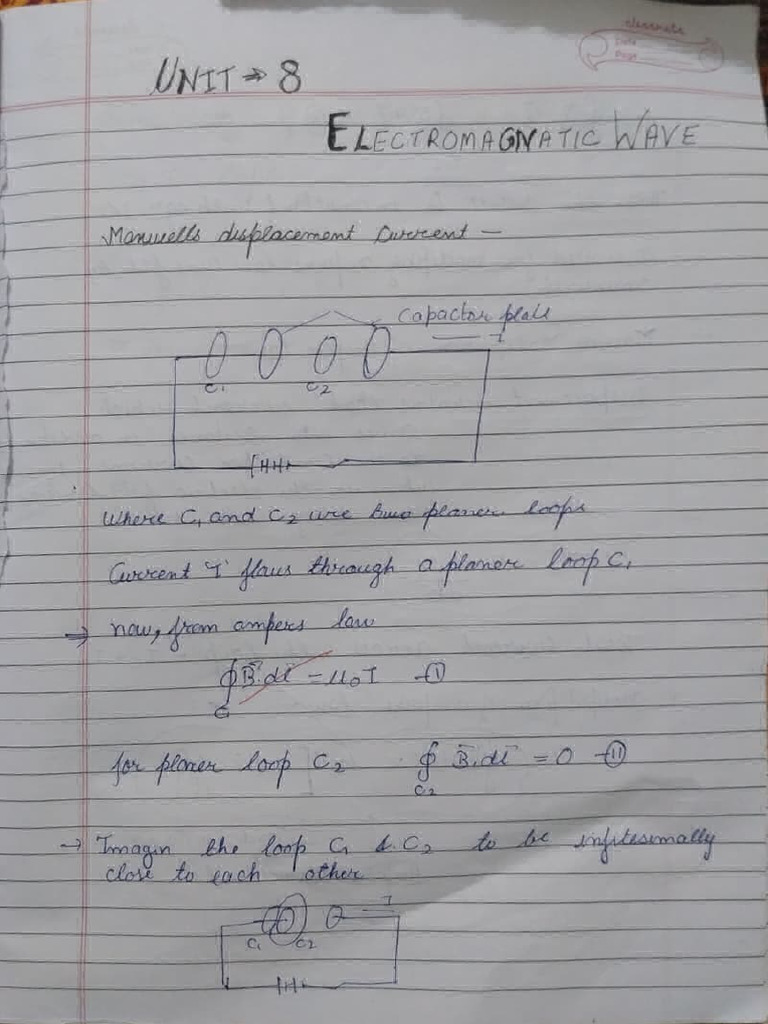 classmate
Date
Page
UNIT → 8
ELECTROMAGNATIC WAVE
Manwells displacement Current —
Capactor plate
I
C1 C2
Where C1 and C2 are two planer loops
Current 'I' flaws through a planer loop C1
⇒ now, from ampers law
∮ B̄.dl̄ = μ0I —(I)
C
for planer loop C2 ∮ B̄.dl̄ = 0 —(II)
C2
→ Imagin the loop C1 & C2 to be infitesimally
close to each other
I
C1 C2